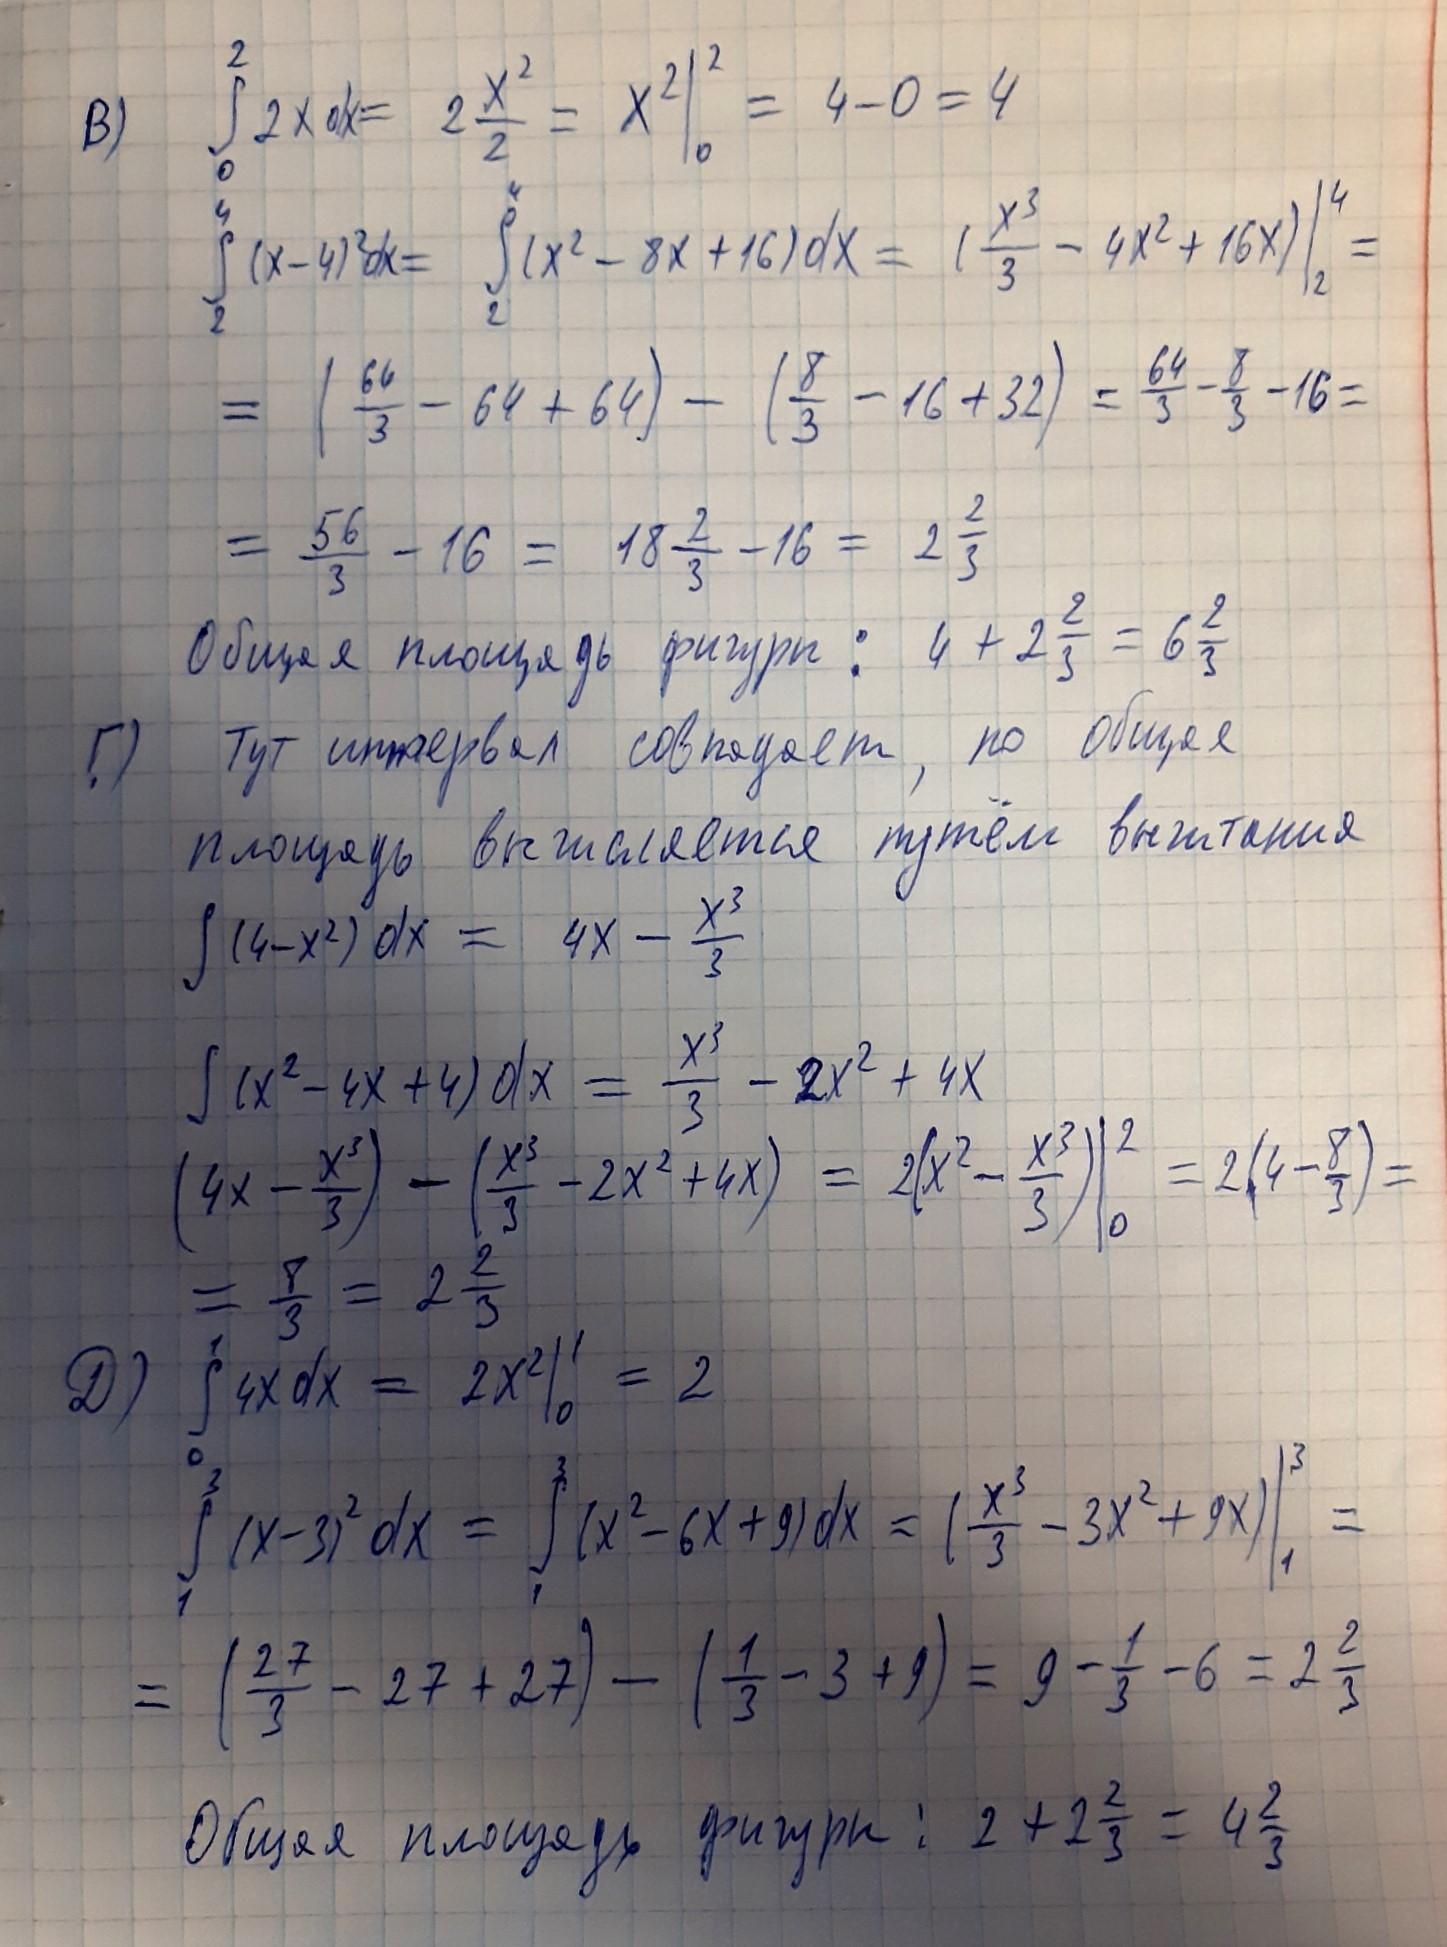 В) ∫₀² 2x dx = 2 x²/2 = x² |₀² = 4 – 0 = 4
∫₂⁴ (x – 4)² dx = ∫₂⁴ (x² – 8x + 16) dx = (x³/3 – 4x² + 16x) |₂⁴ =
= (64/3 – 64 + 64) – (8/3 – 16 + 32) = 64/3 – 8/3 – 16 =
= 56/3 – 16 = 18 2/3 – 16 = 2 2/3
Общая площадь фигуры: 4 + 2 2/3 = 6 2/3
Г) Тут интервал совпадает, но общая
площадь вычисляется путём вычитания
∫ (4 – x²) dx = 4x – x³/3
∫ (x² – 4x + 4) dx = x³/3 – 2x² + 4x
(4x – x³/3) – (x³/3 – 2x² + 4x) = 2(x² – x³/3) |₀² = 2(4 – 8/3) =
= 8/3 = 2 2/3
Д) ∫₀¹ 4x dx = 2x² |₀¹ = 2
∫₁³ (x – 3)² dx = ∫₁³ (x² – 6x + 9) dx = (x³/3 – 3x² + 9x) |₁³ =
= (27/3 – 27 + 27) – (1/3 – 3 + 9) = 9 – 1/3 – 6 = 2 2/3
Общая площадь фигуры: 2 + 2 2/3 = 4 2/3